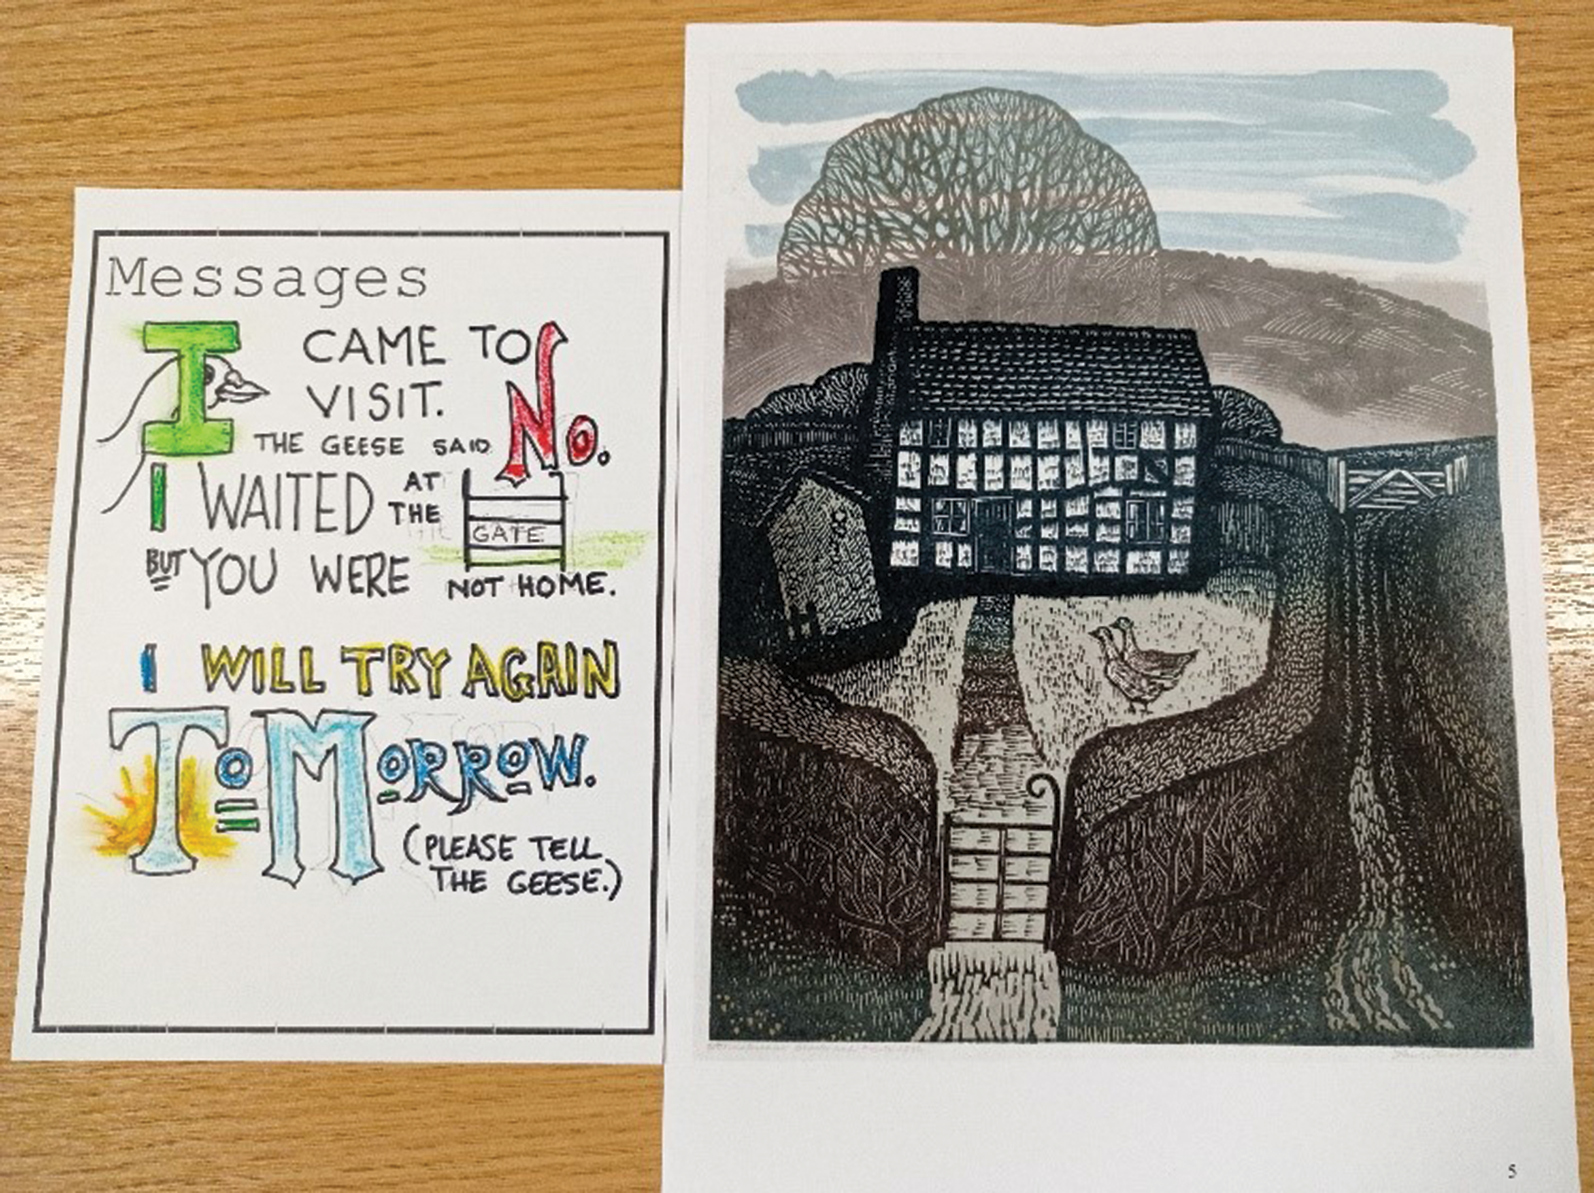 Messages
I CAME TO
VISIT.
THE GEESE SAID No.
I WAITED AT
THE
GATE
BUT YOU WERE
NOT HOME.
I WILL TRY AGAIN
ToMoRRoW.
(PLEASE TELL
THE GEESE.)
5